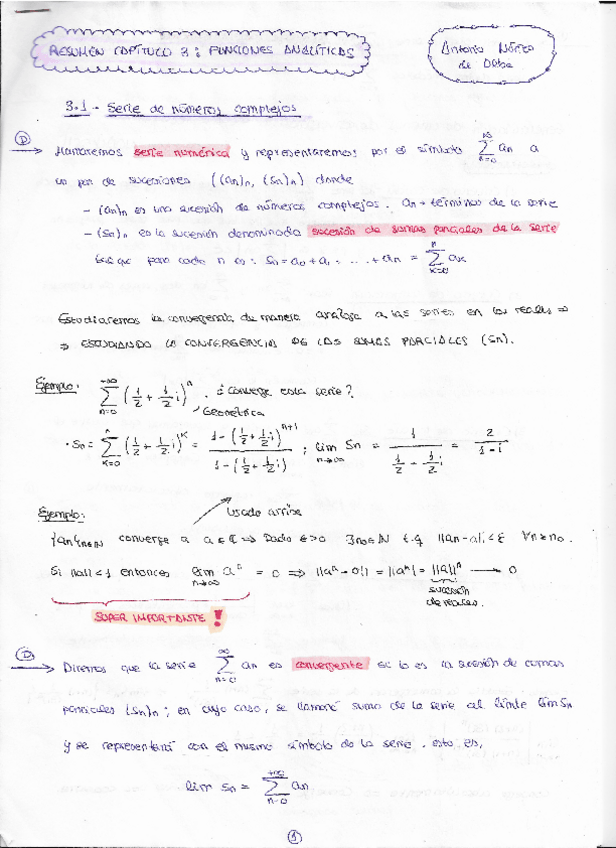 RESUMEN CAPÍTULO 3: FUNCIONES ANALÍTICAS
Antonio
de Dios
3.1 - Serie de números complejos
D → Llamaremos serie numérica y representaremos por el símbolo ∑_{n=0}^{∞} an a
un par de sucesiones ((an)n, (Sn)n) donde
- (an)n es una sucesión de números complejos. an → términos de la serie
- (Sn)n es la sucesión denominada sucesión de sumas parciales de la serie
que para cada n es: Sn = a0 + a1 + ... + an = ∑_{k=0}^{n} ak
Estudiaremos la convergencia de manera análoga a las series en los reales ⇒
⇒ ESTUDIANDO LA CONVERGENCIA DE LAS SUMAS PARCIALES (Sn).
Ejemplo: ∑_{n=0}^{+∞} (1/2 + 1/2 i)^n . ¿Converge esta serie?
Geométrica
· Sn = ∑_{k=0}^{n} (1/2 + 1/2 i)^k = (1 - (1/2 + 1/2 i)^{n+1}) / (1 - (1/2 + 1/2 i)) ; lim_{n→∞} Sn = 1 / (1/2 - 1/2 i) = 2 / (1 - i)
Usado arriba
Ejemplo:
{an}n∈N converge a a ∈ ℂ ⇒ Dado ε>0 ∃n0∈N t.q ||an - a|| < ε ∀n ≥ n0.
Si ||a|| < 1 entonces lim_{n→∞} a^n = 0 ⇒ ||a^n - 0|| = ||a^n|| = ||a||^n → 0
sucesión
de reales.
SUPER IMPORTANTE!
D → Diremos que la serie ∑_{n=0}^{∞} an es convergente si lo es la sucesión de sumas
parciales (Sn)n; en cuyo caso, se llamará suma de la serie al límite lim Sn
y se representará con el mismo símbolo de la serie. esto es,
lim Sn = ∑_{n=0}^{+∞} an
1